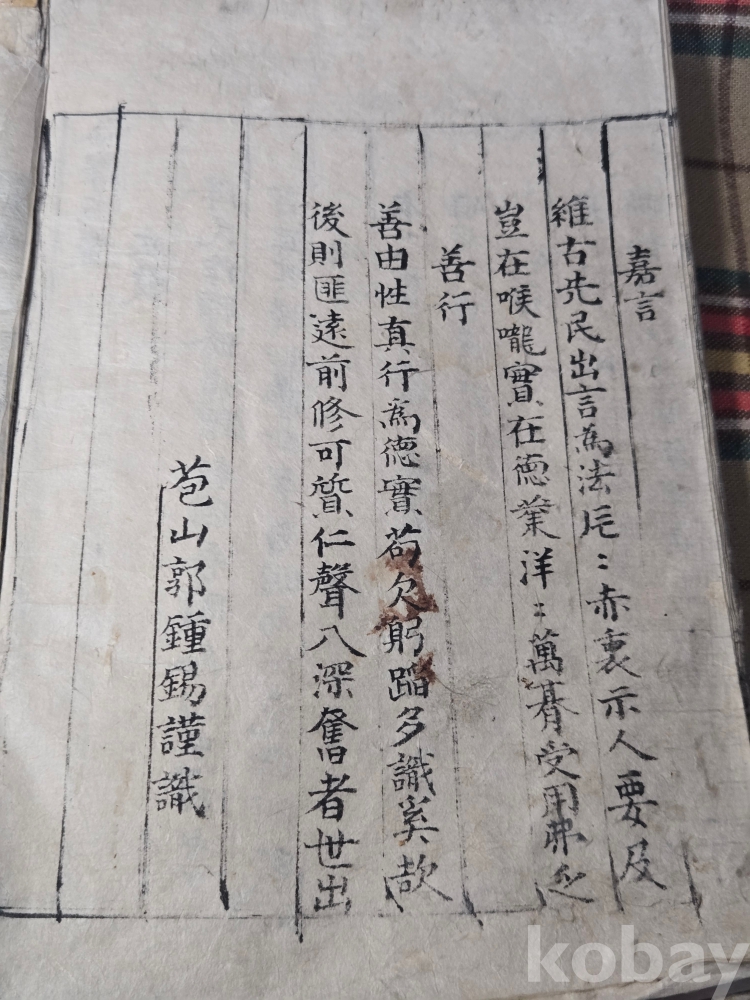 嘉言
維古先民出言為法厇〻赤裏示人要及
豈在喉嚨實在德業洋〻萬朞受用弗乏
善行
善由性真行爲德實苟欠躬蹈多識奚歆
後則匪遠前修可質仁聲入深奮者世出
苞山郭鍾錫謹識
kobay